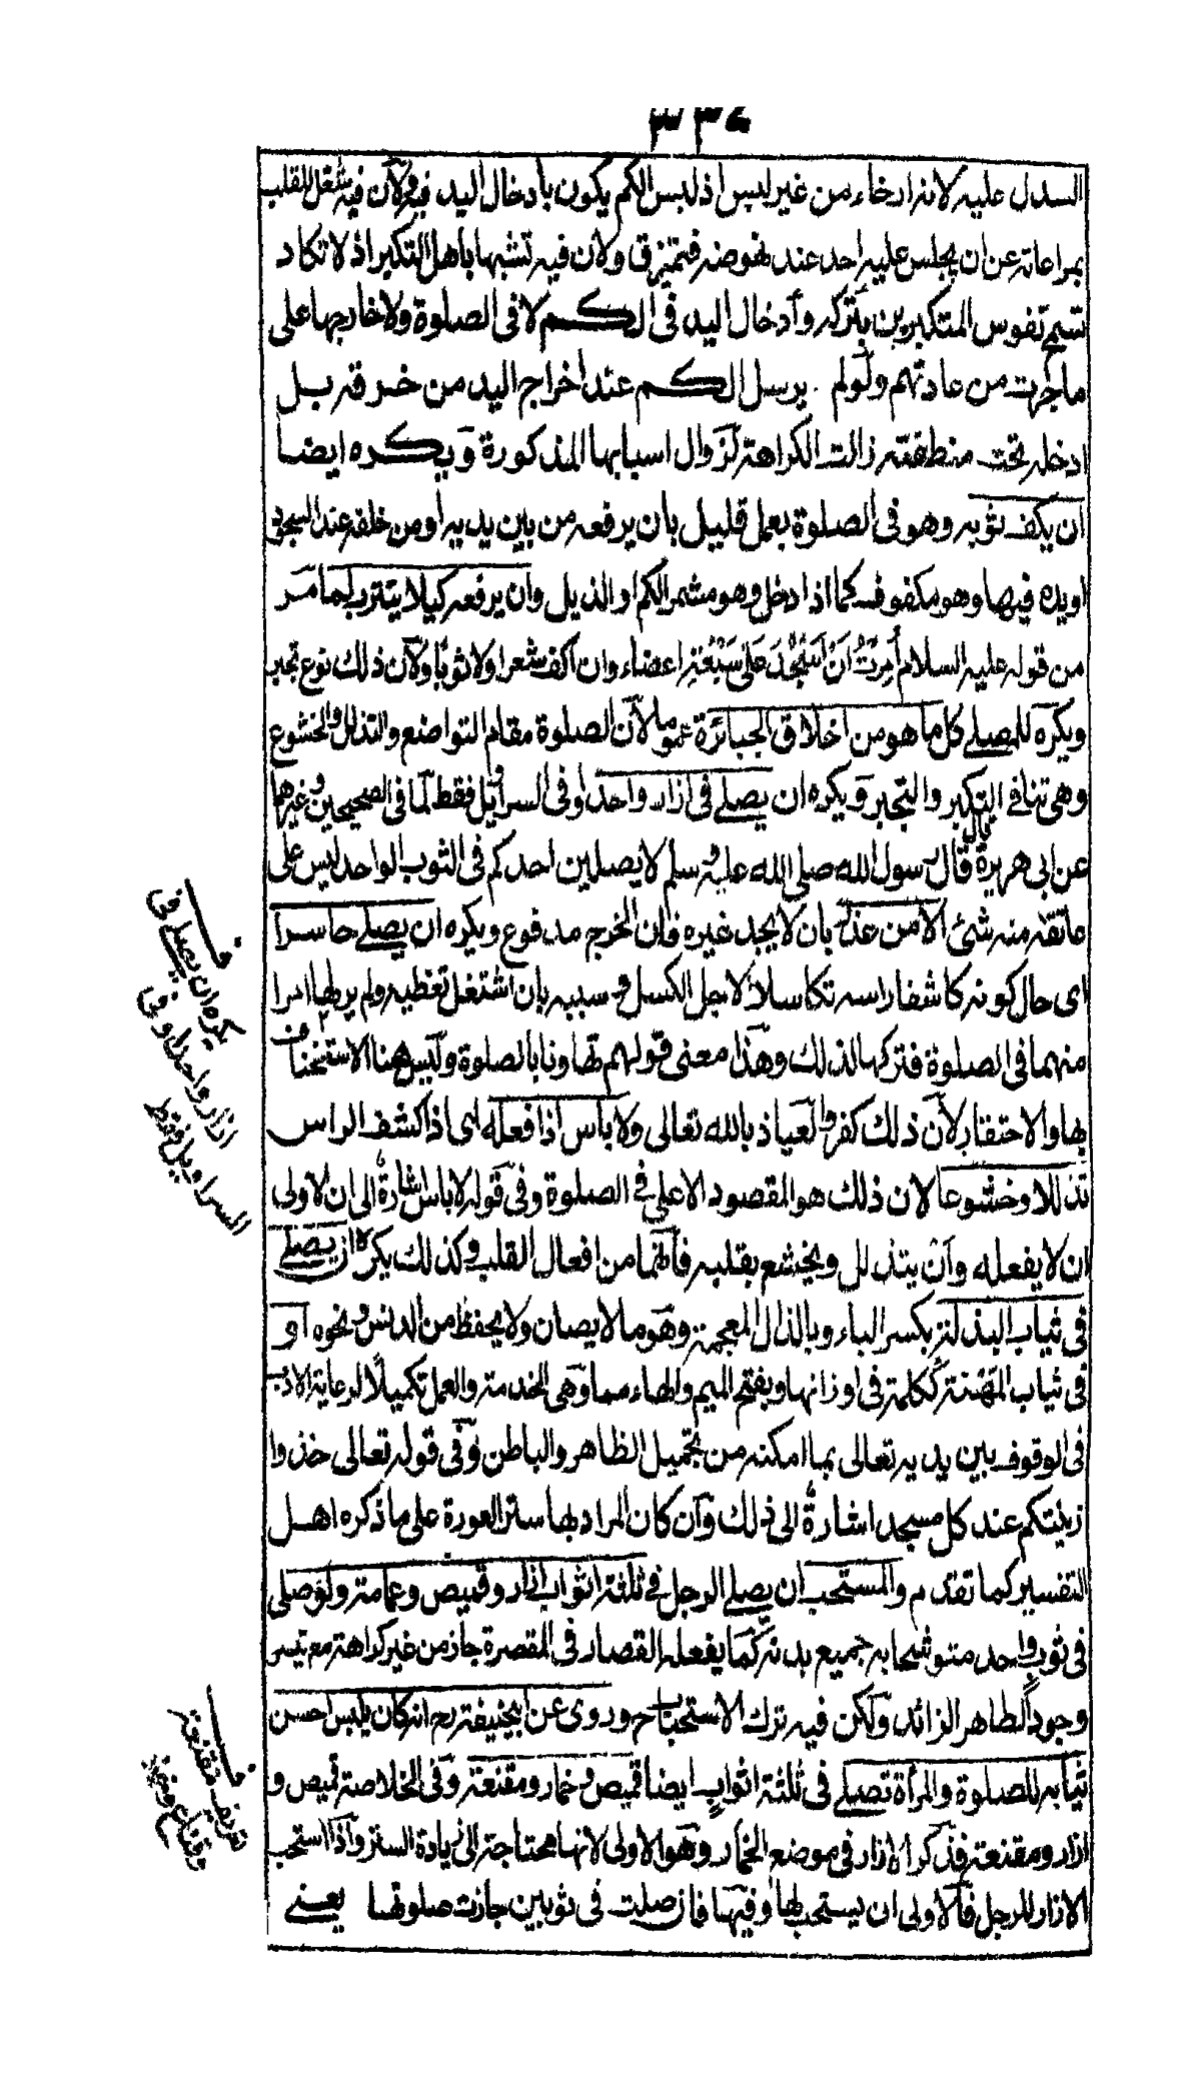 ٣٣٤
السدل عليه لانه ارخاء من غير لبس اذ لبس الكم يكون بادخال اليد فيه ولان فيه شغل للقلب
بمراعاته عن ان يجلس عليه احد عند نهوضه فتمزق ولان فيه تشبها باهل التكبر اذ لا تكاد
تسمح نفوس المتكبرين بتركه وادخال اليد فى الكم لا فى الصلوة ولا خارجها على
ما جرت من عادتهم ولو لم يرسل الكم عند اخراج اليد من خرقه بل
ادخله تحت منطقته زالت الكراهة لزوال اسبابها المذكورة ويكره ايضا
ان يكف ثوبه وهو فى الصلوة بعمل قليل بان يرفعه من بين يديه او من خلفه عند السجود
او يده فيها وهو مكفوف كما اذا دخل وهو مشمر الكم او الذيل وان يرفعه كيلا يتترب لما مر
من قوله عليه السلام أمرت ان اسجد على سبعة اعضاء وان لا اكف شعرا ولا ثوبا ولان ذلك نوع تجبر
ويكره للمصلى كل ما هو من اخلاق الجبائرة عموما لان الصلوة مقام التواضع والتذلل والخشوع
وهى تنافى التكبر والتجبر ويكره ان يصلى فى ازار واحد او فى السراويل فقط لما فى الصحيحين وغيرهما
عن ابى هريرة قال قال رسول الله صلى الله عليه وسلم لا يصلين احدكم فى الثوب الواحد ليس على
عاتقه منه شئ الا من عذر بان لا يجد غيره فان الحرج مدفوع ويكره ان يصلى حاسرا
اى حال كونه كاشفا راسه تكاسلا لاجل الكسل بسببه بان استثقل تغطيه ولم يرها امرا
مهما فى الصلوة فتركها لذلك وهذا معنى قولهم تهاونا بالصلوة وليس هنا الاستخفاف
بها والاحتقار لان ذلك كفر والعياذ بالله تعالى ولا باس اذا فعله اى اذا كشف الراس
تذللا وخشوعا لان ذلك هو المقصود الاعلى فى الصلوة وفى قوله لا باس اشارة الى ان الاولى
ان لا يفعله وان يتذلل ويخشع بقلبه فانهما من افعال القلب وكذلك يكره ان يصلى
فى ثياب البذلة بكسر الباء وبالذال المعجمة وهو ما لا يصان ولا يحفظ من الدنس ونحوه او
فى ثياب المهنة ككلمة فى اوزانها وبفتح الميم والهاء معا وهى الخدمة والعمل تكميلا لرعاية الادب
فى الوقوف بين يديه تعالى بما امكنه من تجميل الظاهر والباطن وفى قوله تعالى خذوا
زينتكم عند كل مسجد اشارة الى ذلك وان كان المراد بها ستر العورة على ما ذكره اهل
التفسير كما تقدم والمستحب ان يصلى الرجل فى ثلثة اثواب ازار وقميص وعمامة ولو صلى
فى ثوب واحد متوشحا به جميع بدنه كما يفعله القصار فى المقصرة جاز من غير كراهة مع تيسر
وجود الطاهر الزائد ولكن فيه ترك الاستحباب وروى عن ابيحنيفة رح انه كان يلبس احسن
ثيابه للصلوة والمرأة تصلى فى ثلثة اثواب ايضا قميص وخمار ومقنعة وفى الخلاصة قميص و
ازار ومقنعة فذكر الازار فى موضع الخمار وهو الاولى لانها محتاجة الى زيادة الستر واذا استحب
الازار للرجل فالاولى ان يستحب لها وفيها فان صلت فى ثوبين جازت صلوتها يعنى
يكره ان يصلى فى
ازار واحد او فى
السراويل فقط
تعريف مقنعة